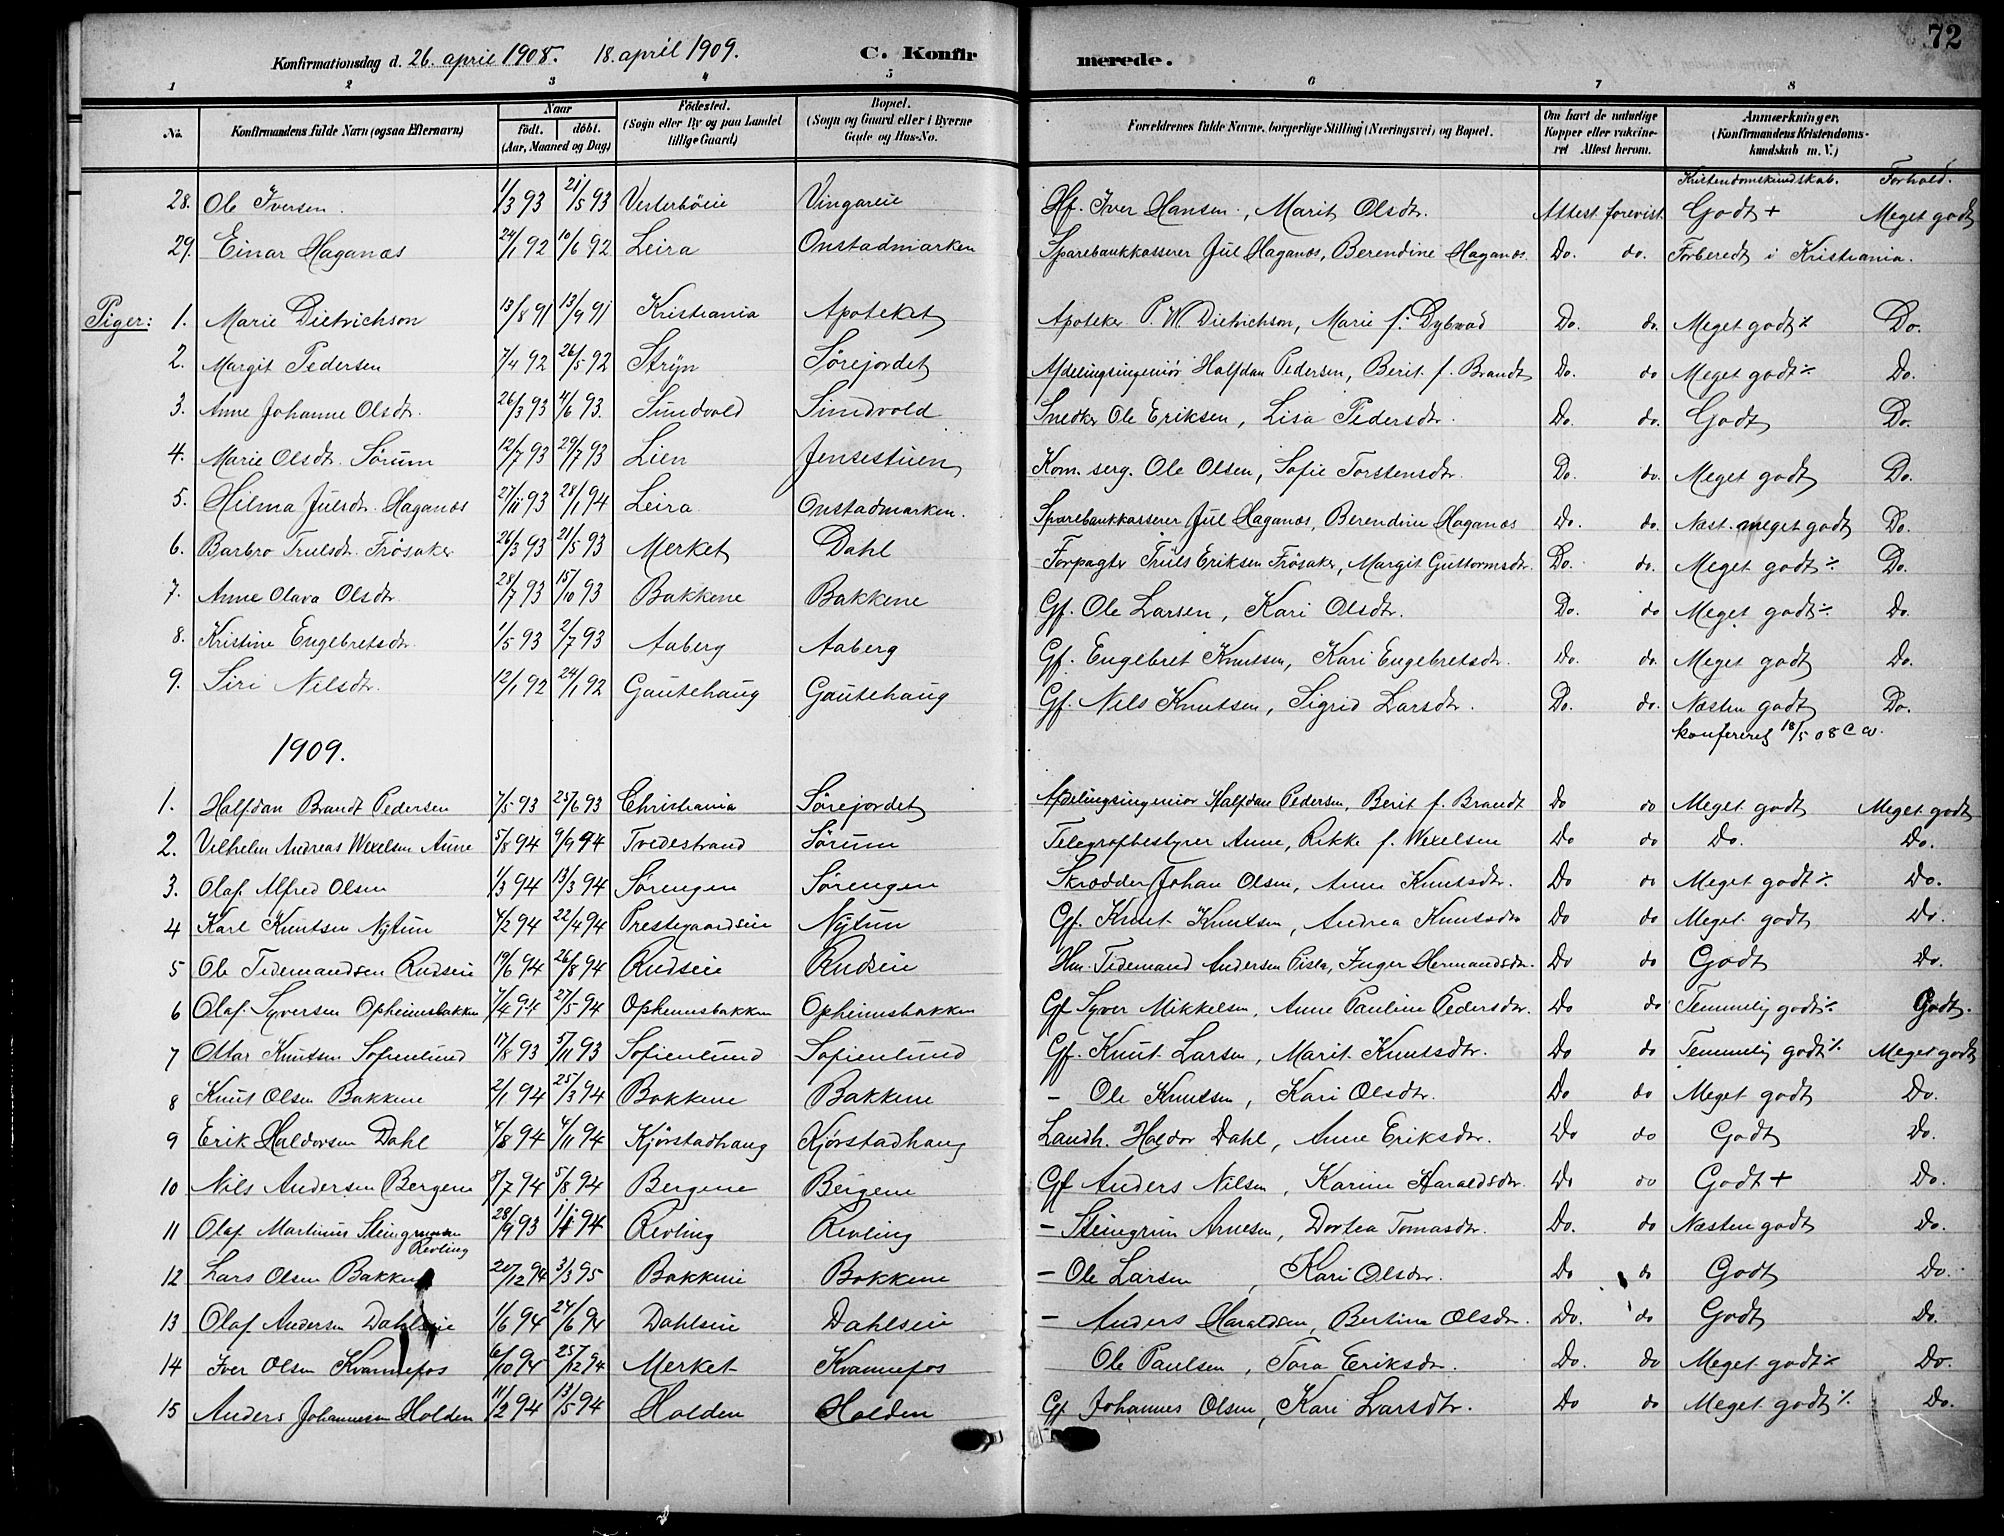 72
Konfirmationsdag d. 26. april 1908. 18. april 1909. C. Konfirmerede.
1 2 3 4 5 6 7 8
No. Konfirmandens fulde Navn (ogsaa Efternavn) Naar født. døbt. (Aar, Maaned og Dag) Fødested. (Sogn eller By og paa Landet tillige Gaard) Bopæl. (Sogn og Gaard eller i Byerne Gade og Hus-No. Forældrenes fulde Navne, borgerlige Stilling (Næringsvei) og Bopæl. Om havt de naturlige Kopper eller vakcineret Attest herom. Anmærkninger. (Konfirmandens Kristendomskundskab m. V.)
Kristendomskundskab. Forhold.
28. Ole Iversen. 1/3 93 21/5 93 Vesterböeie Vingareie Hf. Iver Hansen, Marit Olsdtr. Attest forevist Godt + Meget godt
29. Einar Haganæs 24/1 92 10/6 92 Leira Onstadmarken Sparebankkasserer Jul Haganæs, Berendine Haganæs. Do. do. Forberedt i Kristiania.
Piger: 1. Marie Dietrichson 13/8 91 13/9 91 Kristiania Apoteket Apoteker P. W. Dietrichson, Marie f. Dybwad Do. do. Meget godt ÷ Do.
2. Margit Pedersen 7/4 92 26/5 92 Stryn Sørejordet Afdelingsingeniör Halfdan Pedersen, Berit f. Brandt Do. do Meget godt ÷ Do.
3. Anne Johanne Olsdtr. 26/3 93 4/6 93. Sundvold Sundvold Snedker Ole Eriksen, Lisa Pedersdtr. Do. do. Godt Do.
4. Marie Olsdtr. Sørum 12/7 93 29/7 93 Lien Jensestuen Kom. serg. Ole Olsen, Sofie Torstensdtr. Do. do. Meget godt Do.
5. Hilma Julsdtr. Haganæs 27/11 93 28/1 94 Leira Onstadmarken. Sparebankkasserer Jul Haganæs, Berendine Haganæs Do. do. Næst. meget godt Do.
6. Barbro Trulsdtr. Frösaker 26/3 93 21/5 93 Merket Dahl Forpagter Truls Eriksen Frösaker, Margit Guttormsdtr. Do. do. Meget godt ÷ Do.
7. Anne Olava Olsdtr. 28/7 93 15/10 93 Bakkene Bakkene Gf. Ole Larsen, Kari Olsdtr. Do. do Meget godt ÷ Do.
8. Kristine Engebretsdtr. 1/5 93 2/7 93 Aaberg Aaberg Gf. Engebret Knutsen, Kari Engebretsdtr. Do. do. Meget godt Do.
9. Siri Nilsdtr. 12/1 92 24/1 92 Gautehaug Gautehaug Gf. Nils Knutsen, Sigrid Larsdtr. Do. do. Næsten godt Do.
konfereret 18/5 08 C W.
1909.
1. Halfdan Brandt Pedersen 7/5 93 25/6 93 Christiania Sørejordet Afdelingsingeniör Halfdan Pedersen, Berit f. Brandt Do do Meget godt Meget godt
2. Vilhelm Andreas Wexelsen Aune 5/8 94 9/9 94 Tvedestrand Sørum Telegrafbestyrer Aune, Rikke f. Wexelsen Do do Do. Do.
3. Olaf Alfred Olsen 1/3 94 13/3 94 Sørengen Sørengen Skrædder Johan Olsen, Anne Knutsdtr. Do do Meget godt ÷ Do.
4 Karl Knutsen Nytun 4/2 94 22/4 94 Prestegaardseie Nytun Gf. Knut Knutsen, Andrea Knutsdtr Do do Meget godt Do.
5 Ole Tidemandsen Rudseie 19/6 94 26/8 94 Rudseie Rudseie Hm. Tidemand Andersen, Inger Hermandsdtr. Do do Godt Do.
6 Olaf Syversen Opheimsbakken 7/4 94 27/5 94 Opheimsbakken Opheimsbakken Gf Syver Mikkelsen, Anne Pauline Pedersdtr. Do do Temmelig godt ÷ Godt.
7 Ottar Knutsen Sofienlund 17/8 93 5/11 93 Sofienlund Sofienlund Gf. Knut Larsen, Marit Knutsdtr. Do do Temmelig godt ÷ Meget godt
8 Knut Olsen Bakkene 2/1 94 25/3 94 Bakkene Bakkene – Ole Knutsen, Kari Olsdtr. Do do Meget godt Do.
9 Erik Haldorsen Dahl 4/8 94 4/11 94 Kjörstadhaug Kjörstadhaug Landh. Haldor Dahl, Anne Eriksdtr. Do do Godt Do.
10 Nils Andersen Bergene 8/7 94 5/8 94 Bergene Bergene Gf Anders Nilsen, Karine Haraldsdtr. Do do Godt + Do.
11 Olaf Martinius Steingrimsen Revling 28/9 93 1/1 94 Revling Revling – Steingrim Arnesen, Dortea Tomasdtr. Do. do Næsten godt Do.
12 Lars Olsen Bakkene 20/12 94 3/3 95 Bakkene Bakkene – Ole Larsen, Kari Olsdtr. Do do Godt Do.
13 Olaf Andersen Dahlseie 1/6 94 24/6 94 Dahlseie Dahlseie – Anders Haraldsen, Bertine Olsdtr. Do. do Godt Do.
14 Iver Olsen Kvannefos 6/10 94 25/12 94 Merket Kvannefos Ole Paulsen, Tora Eriksdtr. Do. do Meget godt ÷ Do.
15 Anders Johannesen Holden 11/2 94 13/5 94 Holden Holden Gf Johannes Olsen, Kari Larsdtr. Do do Meget godt ÷ Do.